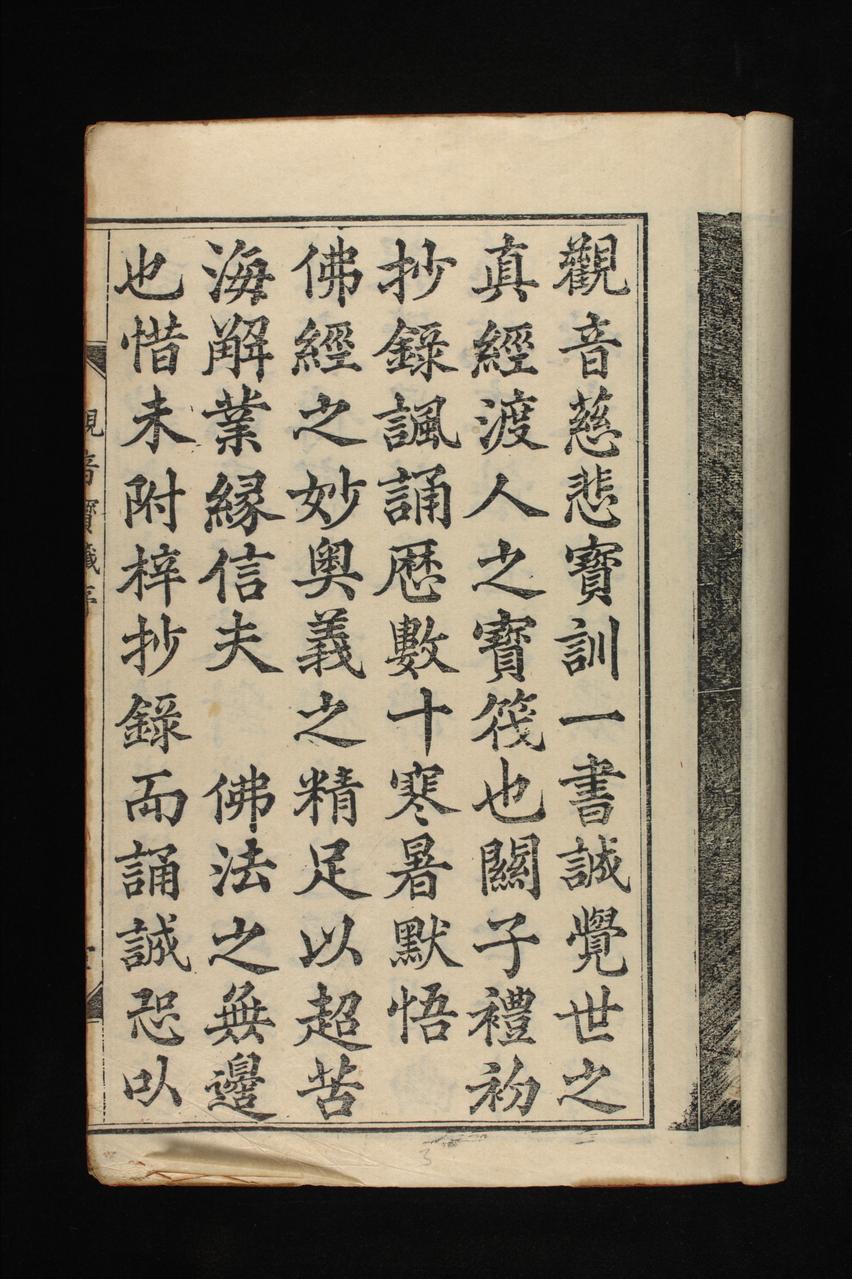 觀音慈悲寶訓一書誠覺世之
真經渡人之寶筏也關子禮初
抄錄諷誦歴數十寒暑默悟
佛經之妙奧義之精足以超苦
海解業緣信夫　佛法之無邊
也惜未附梓抄錄而誦誠恐以
觀音寶籤序
3